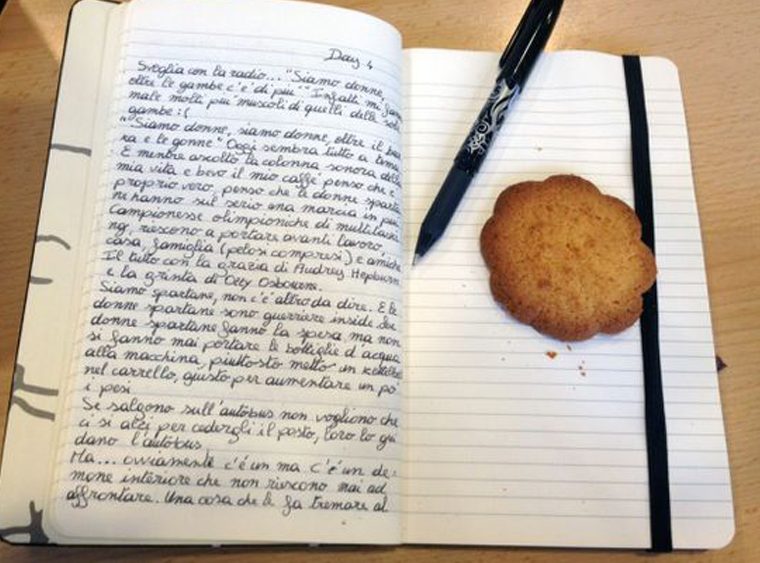 Day 4
Sveglia con la radio... "Siamo donne,
oltre le gambe c'è di più" Infatti mi fanno
male molti più muscoli di quelli delle sole
gambe :(
"Siamo donne, siamo donne, oltre il
ra e le gonne" Oggi sembra tutto a tema
E mentre ascolto la colonna sonora della
mia vita e bevo il mio caffè penso che è
proprio vero, penso che le donne sparta
ne hanno sul serio una marcia in più.
Campionesse olimpioniche di multitaski
ng, riescono a portare avanti lavoro,
casa, famiglia (pelosi compresi) e amiche
Il tutto con la grazia di Audrey Hepburn
e la grinta di Ozzy Osbourne.
Siamo spartane, non c'è altro da dire. E le
donne spartane sono guerriere inside. Le
donne spartane fanno la spesa, ma non
si fanno mai portare le bottiglie d'acqua
alla macchina, piuttosto metto un kettlebell
nel carrello, giusto per aumentare un po'
i pesi
Se salgono sull'autobus non vogliono che
ci si alzi per cedergli il posto, loro lo gui
dano l'autobus
Ma... ovviamente c'é un ma c'é un de-
mone interiore che non riescono mai ad
affrontare. Una cosa che le fa tremare al